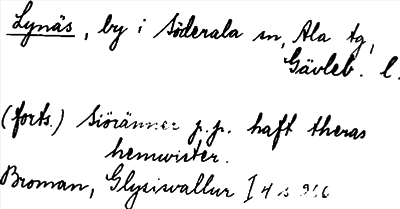 Lynäs, by i Söderala sn, Ala tg,
Gävleb. l.
(forts.) Siöränner p.p. haft theras
hemwister.
Broman, Glysisvallur I 4 s